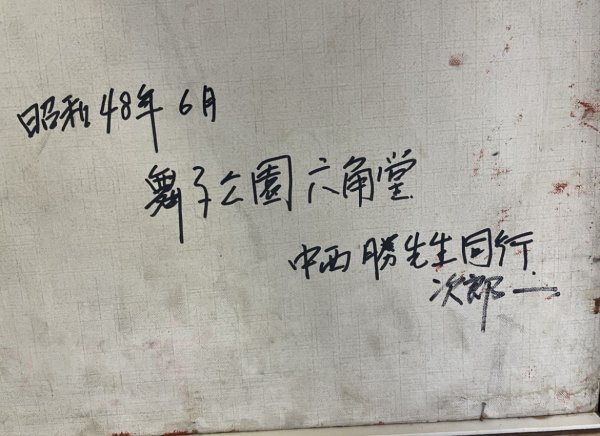 昭和48年6月
舞子公園六角堂
中西勝先生同行
次郎